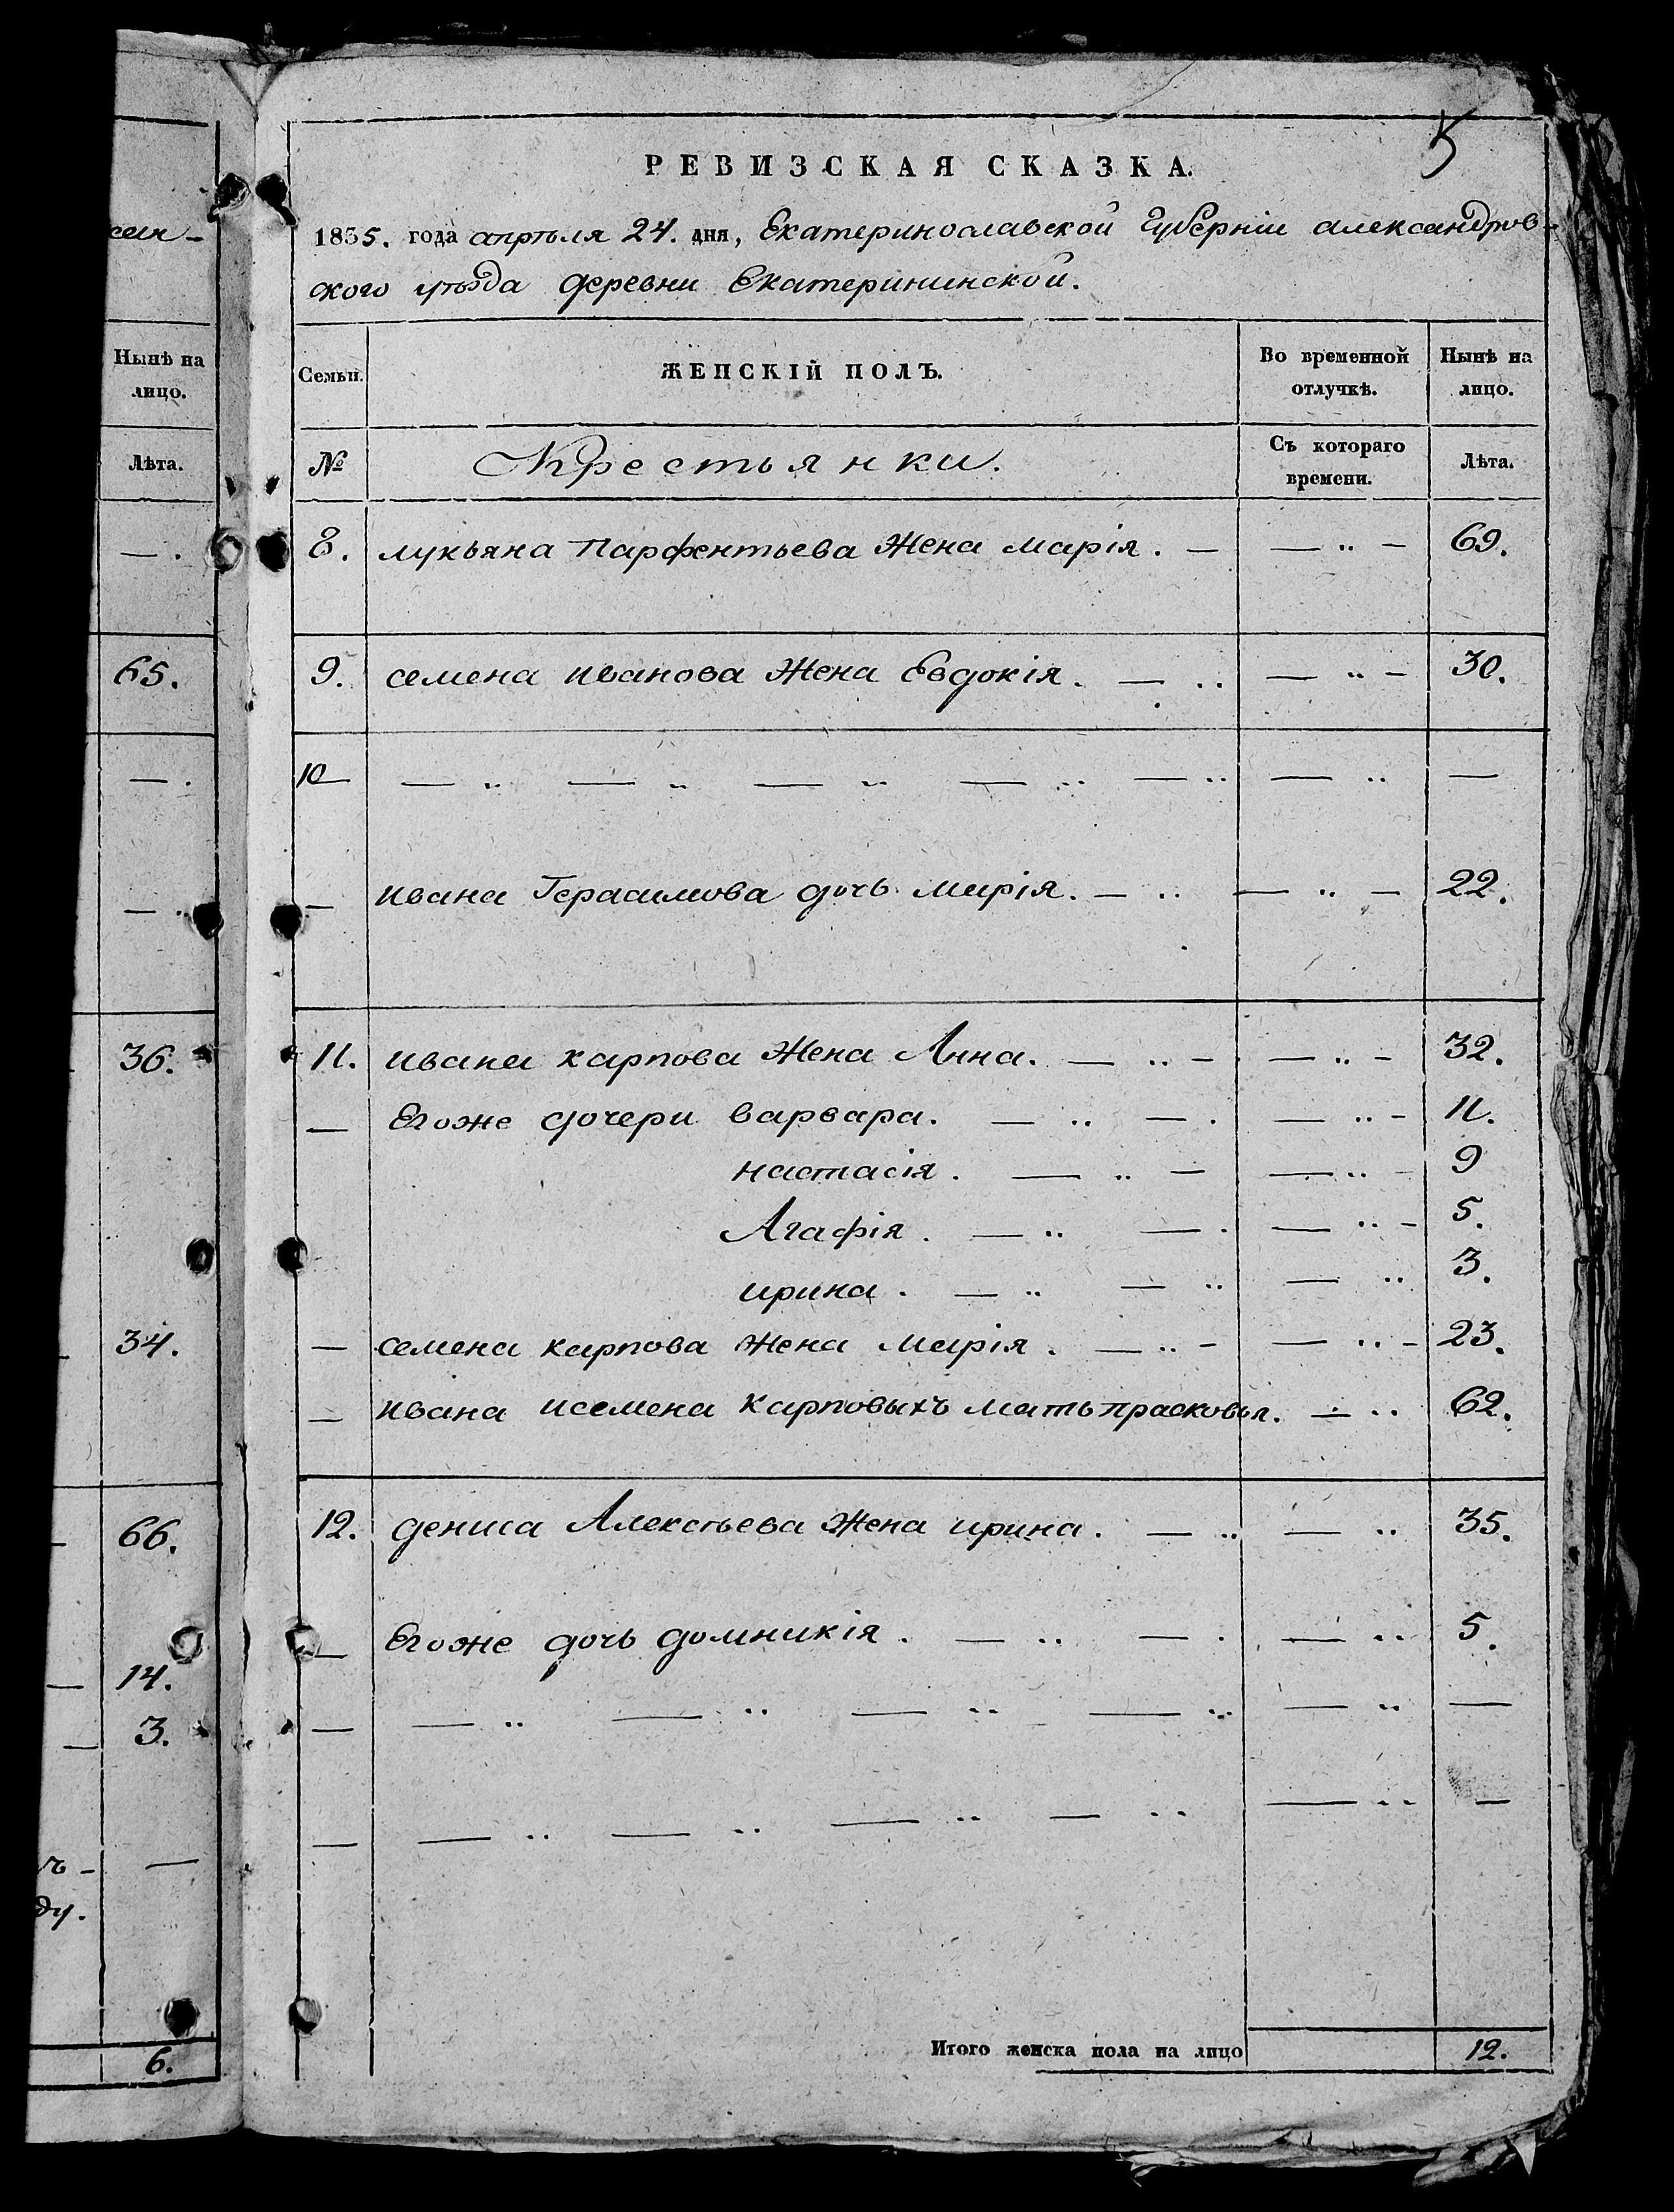 5
РЕВИЗСКАЯ СКАЗКА.
1835. года апрѣля 24. дня, Екатеринославской Губерніи александров-
ского уѣзда деревни Екатерининской.
Нынѣ на лицо.
Лѣта.
65.
36.
34.
66.
14.
3.
ду.
6.
Семьи. ЖЕНСКІЙ ПОЛЪ. Во временной отлучкѣ. Нынѣ на лицо.
№ Крестьянки. Съ котораго времени. Лѣта.
8. лукьяна Парфентьева жена марія. 69.
9. семена иванова жена Евдокія. 30.
10
ивана Герасимова дочь марія. 22.
11. ивана карпова жена Анна. 32.
Егоже дочери варвара. 11.
настасія. 9
Агафія. 5.
ирина. 3.
семена карпова жена марія. 23.
ивана исемена карповыхъ мать прасковья. 62.
12. дениса Алексѣева жена ирина. 35.
Егоже дочь домникія. 5.
Итого женска пола на лицо 12.